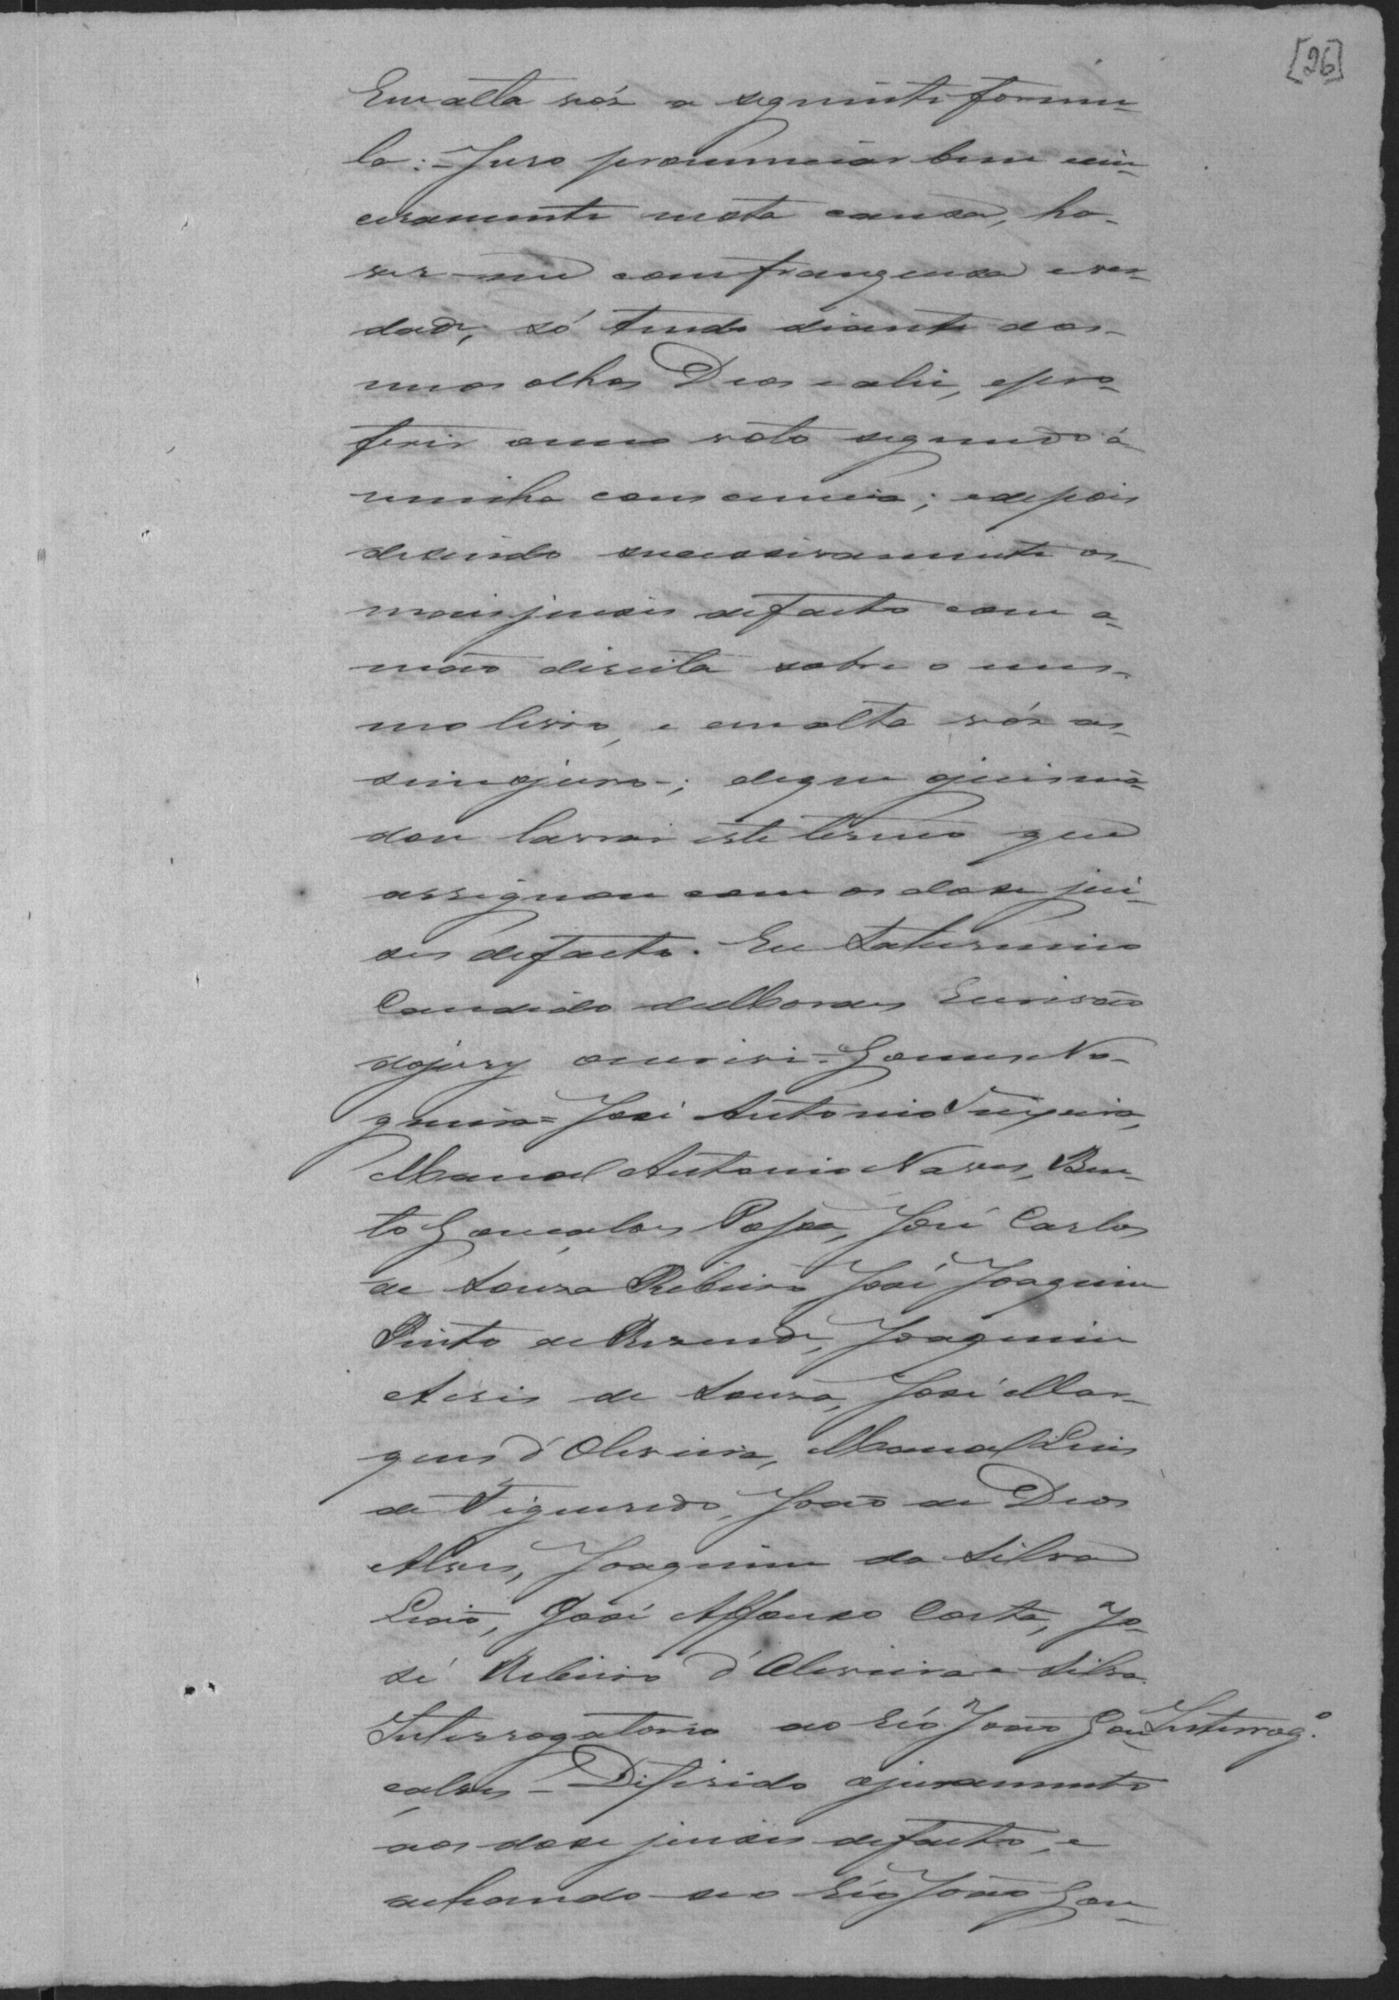 [26]
Em alta vós a seguinte formu-
la: - Juro pronunciar bem sin-
ceramente nesta causa, ha-
ver-me com franqueza e ver-
dade, só tendo diante dos
meus olhos Deos e a lei, e pro-
ferir o meu voto segundo á
minha consciencia; e depois
dizendo successivamente os
mais juises de facto com a
mão direita sobre o mes-
mo livro, e em alta vós as-
sim o juro -; do que o juis man-
dou lavrar este termo que
assignou com os dose jui-
ses de facto. Eu Saturnino
Candido de Moraes Escrivão
do jury o escrivi = Gomes No-
gueira = José Antonio Teixeira,
Manoel Antonio Naves, Ben-
to Gonçalves, José Carlos
de Souza Ribeiro, José Joaquim
Pinto de Rezende, Joaquim
de Souza, José Mar-
ques d'Oliveira, Manoel Luis
de Figueredo, João de Deos
Alves, Joaquim da Silva
Leão, José Affonso Costa, Jo-
sé Ribeiro d'Oliveira e Silva.
Interrogatorio ao Réo João Gon-
Interrog.º
çalves - Diferido o juramento
aos dose juises de facto, e
achando-se o Réo João Gon-